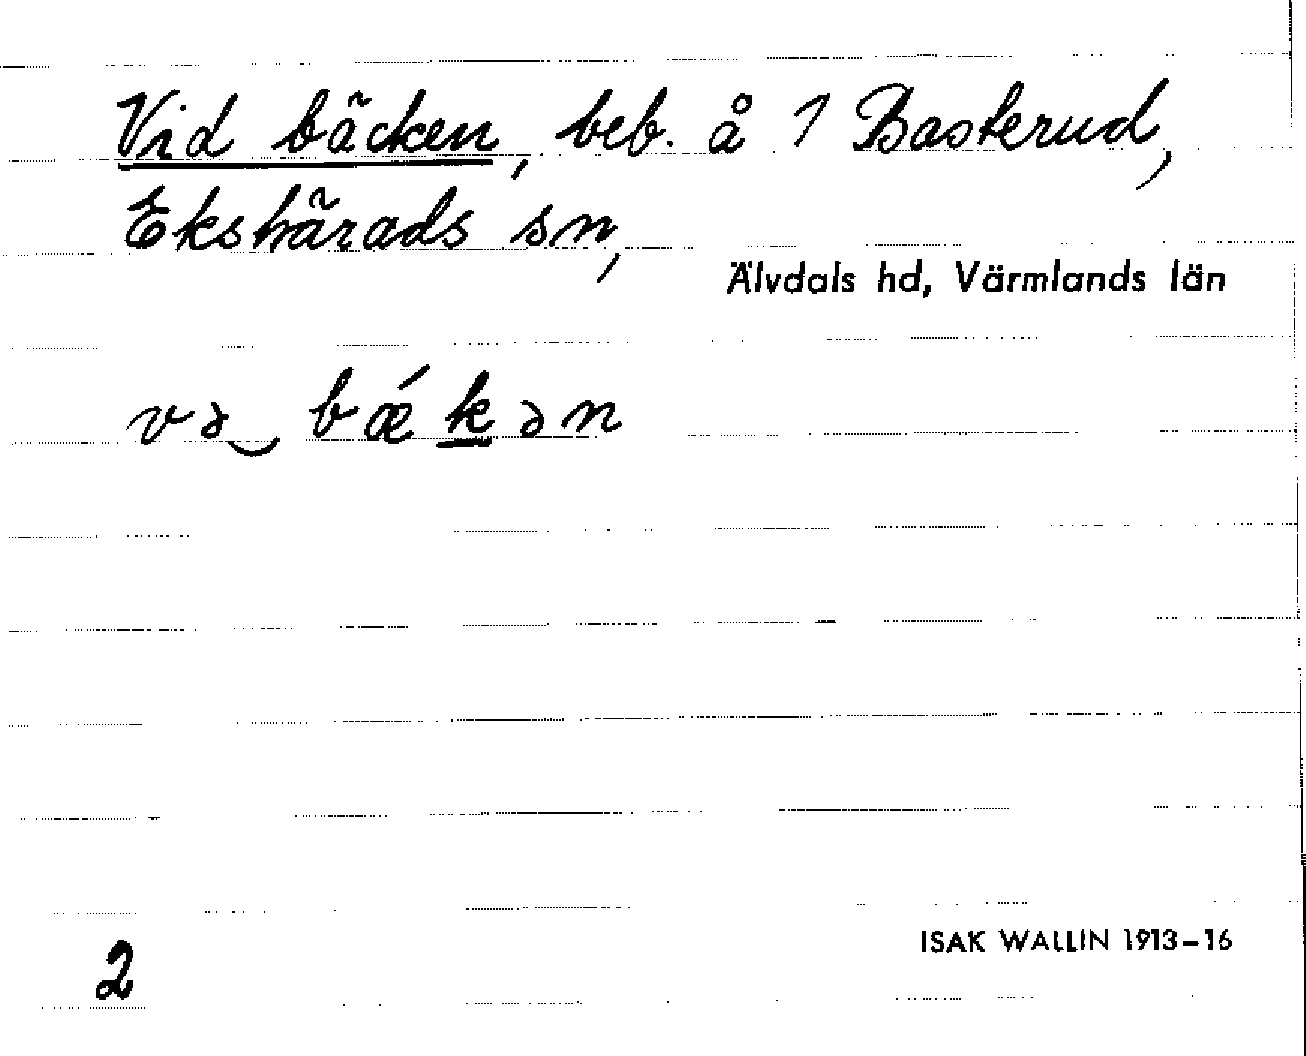 Vid bäcken, beb. å 1 Basterud,
Ekshärads sn,
Älvdals hd, Värmlands län
və‿ bǽkən
2
ISAK WALLIN 1913–16